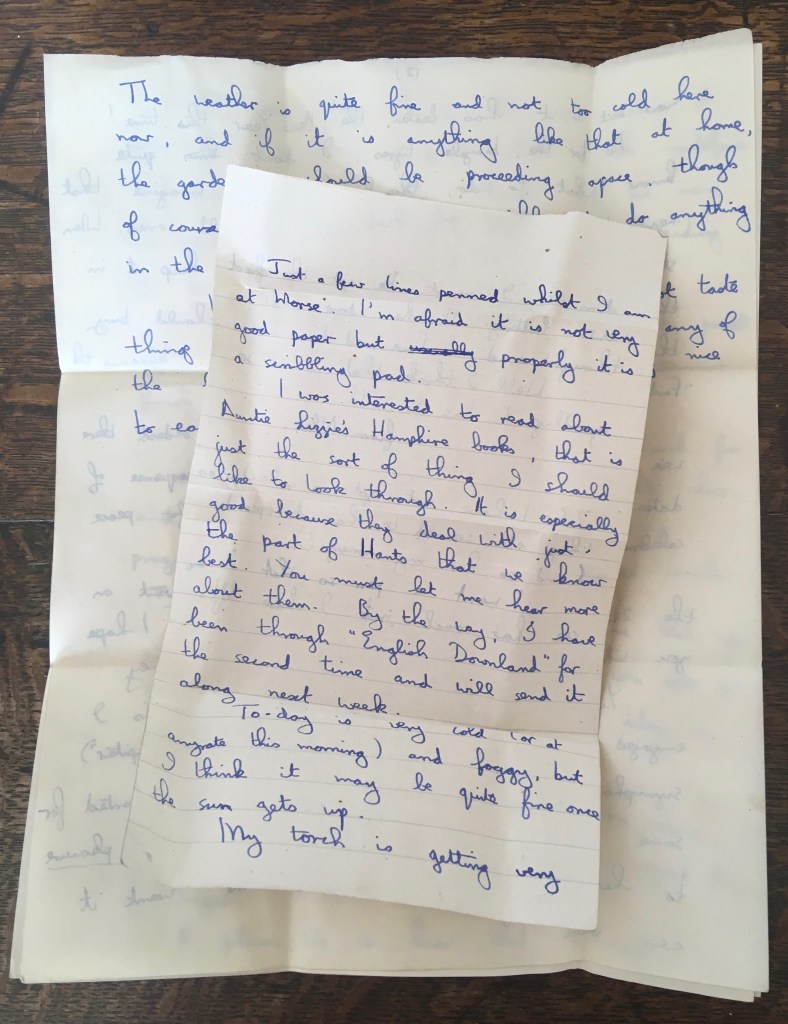 The weather is quite fine and not too cold here
now, and if it is anything like that at home,
the garde should be proceeding apace. though
of course do anything
in the taste
any of
thing nice
the
to ea
Just a few lines penned whilst I am
at Morse. I'm afraid it is not very
good paper but usually properly it is
a scribbling pad.
I was interested to read about
Auntie Lizzie's Hamphire books, that is
just the sort of thing I should
like to look through. It is especially
good because they deal with just
the part of Hants that we know
best. You must let me hear more
about them. By the way, I have
been through "English Downland" for
the second time and will send it
along next week.
To-day is very cold (or at
anyrate this morning) and foggy, but
I think it may be quite fine once
the sun gets up.
My torch is getting very